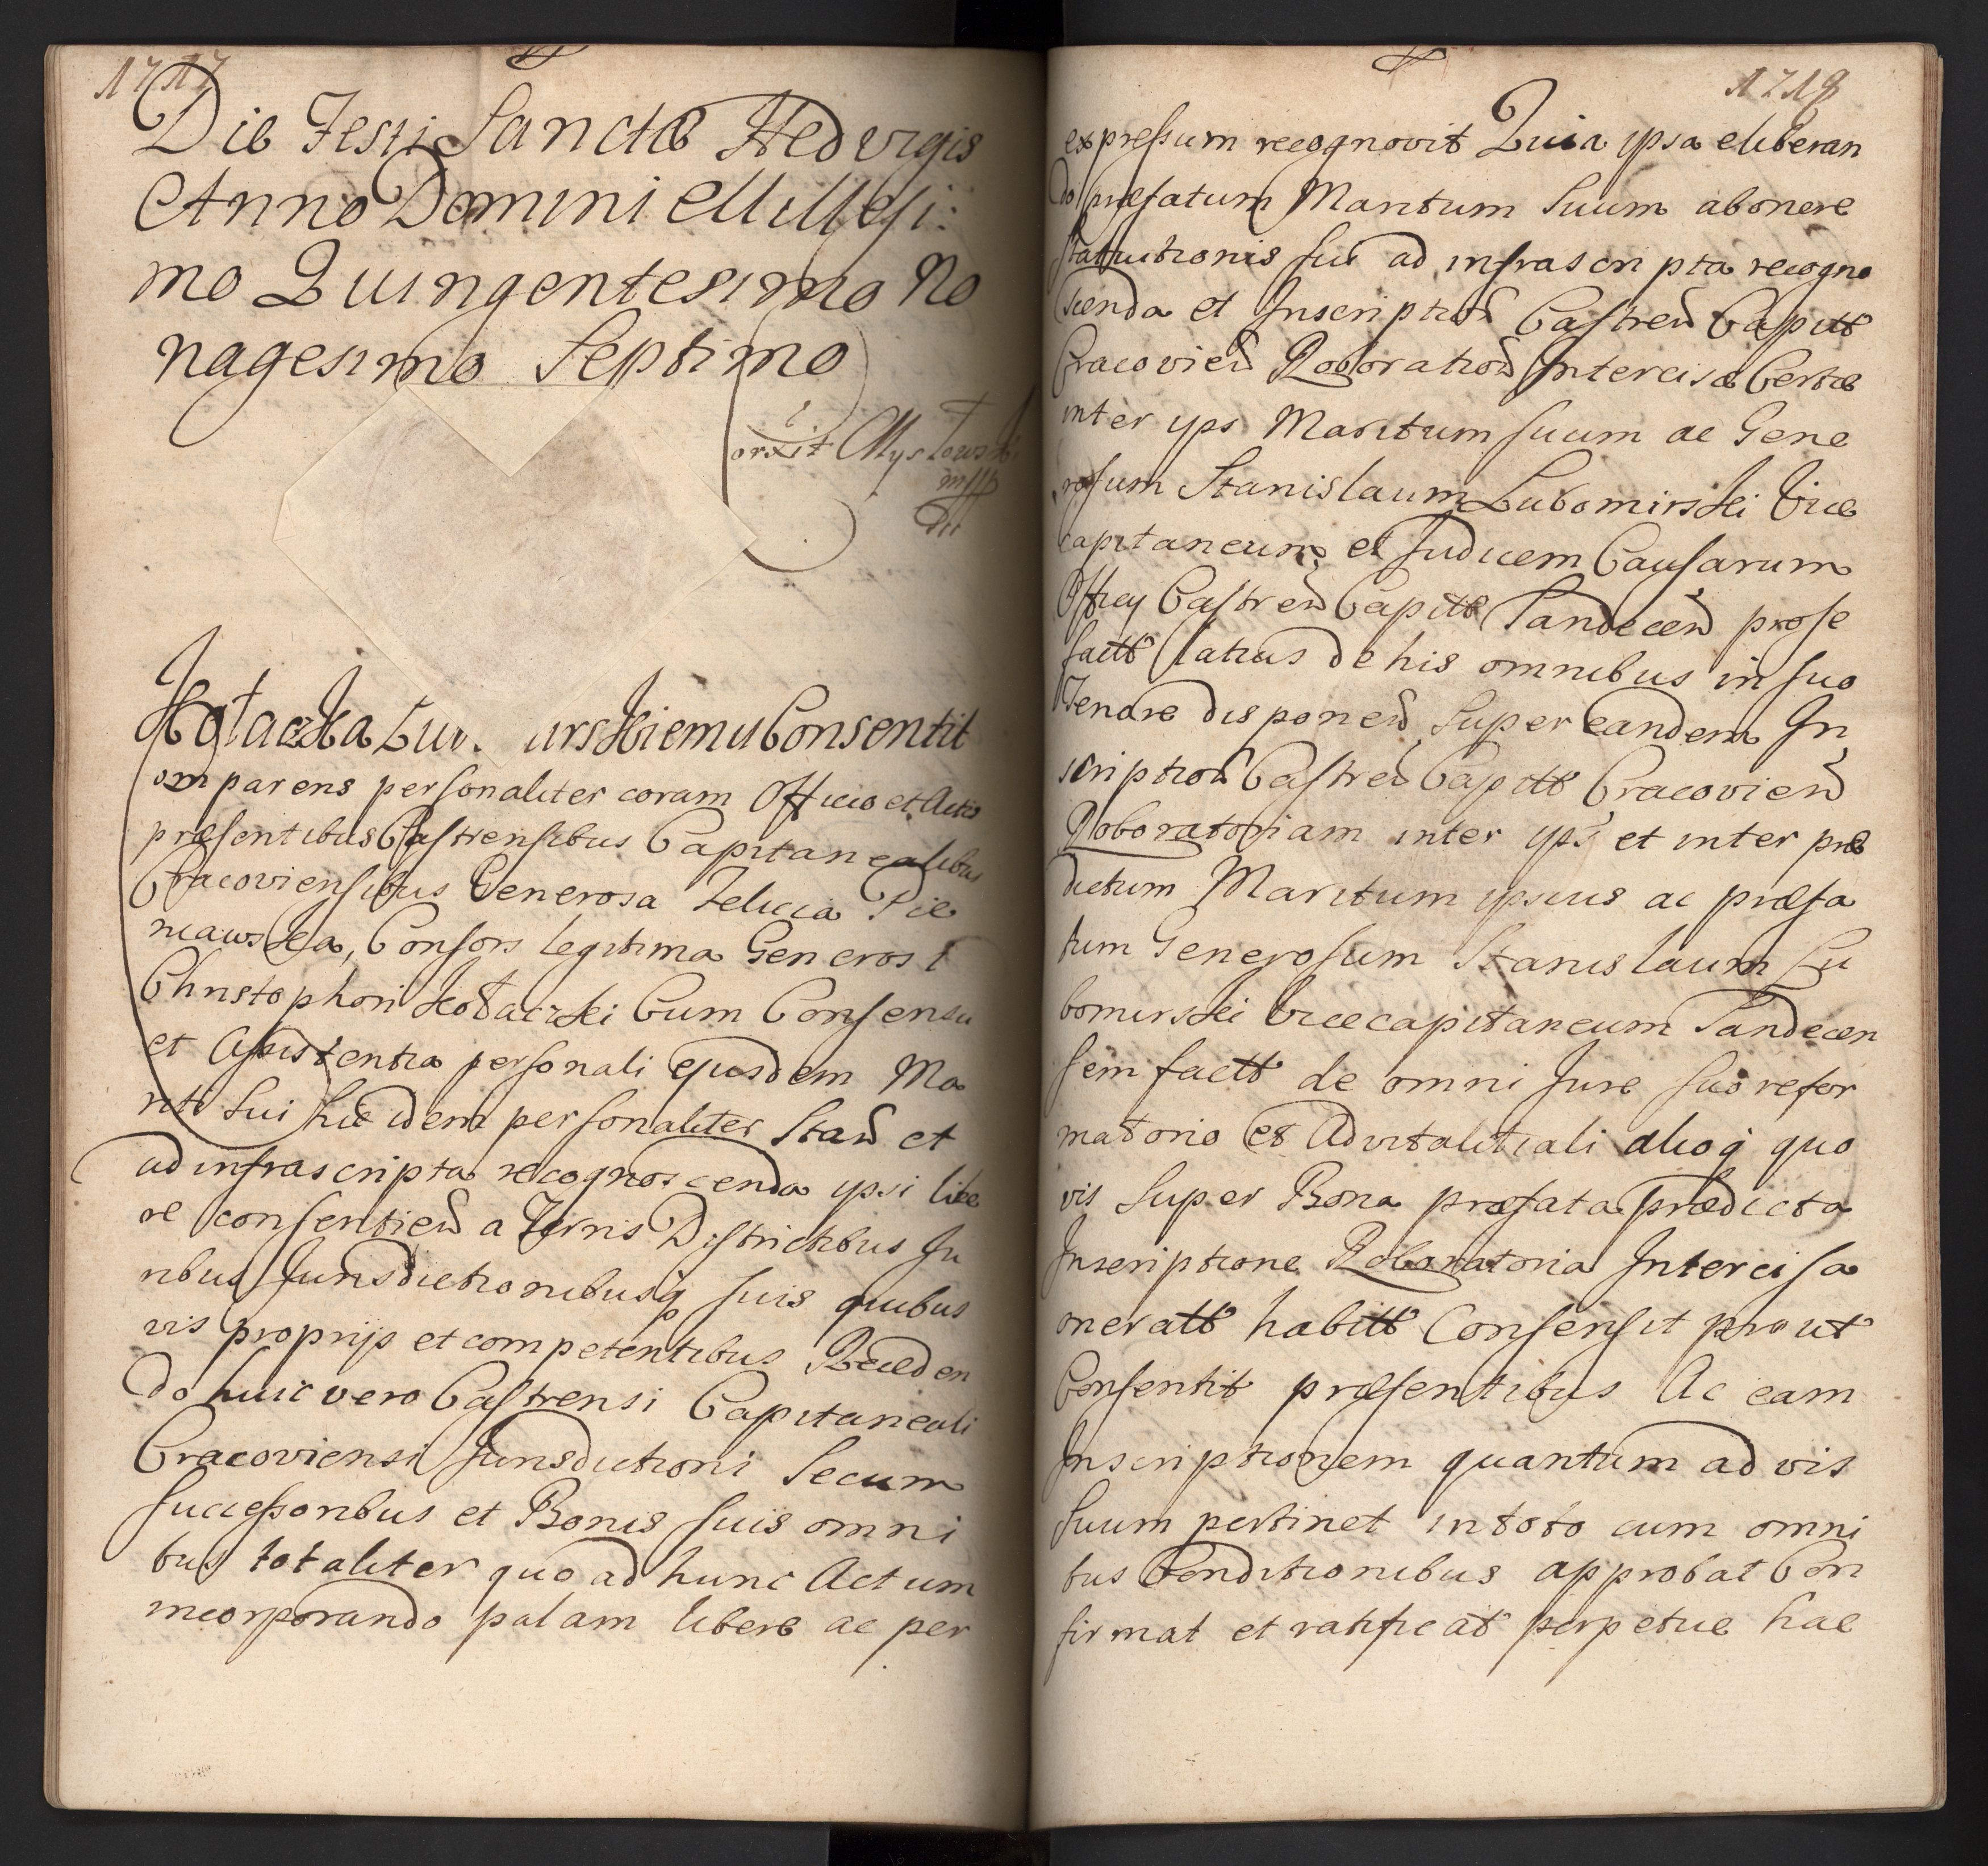 1717
Die Festi Sanctæ Hedvigis
Anno Domini Millesi:
mo Quingentesimo No
nagesimo Septimo
Myslowski
mpp
Kotaczka Lu urskiemu Consentit
omparens personaliter coram Officio et Actis
præsentibus Castrensibus Capitanealibus
Cracoviensibus Generosa Felicia Pie
niawska, Consors legitima Generosi
Christophori Kotaczki Cum Consensu
et Assistentia personali ejusdem Ma
riti sui hic idem personaliter Stañ et
ad infrascripta recognoscenda ipsi libe
re consentieñ a Terris Districtibus Ju
ribus Jurisdictionibusq suis quibus
vis proprijs et competentibus Receden
do huic vero Castrensi Capitaneali
Cracoviensi Jurisdictioni Secum
Successoribus et Bonis suis omni
bus totaliter quo ad hunc Actum
incorporando palam libere ac per
1718
expressum recognovit Quia ipsa eliberan
do præfatum Maritum Suum ab onere
statutionis suæ ad infrascripta recogno
scenda et Inscriptioñ Castreñ Capitt
Cracovieñ Roboratioñ Intercisæ Certæ
inter ips Maritum suum ac Gene
rosum Stanislaum Lubomirski Vice
capitaneum et Judicem Causarum
Officy Castreñ Capitt Sandeceñ prose
factt latius de his omnibus in suo
Tenore disponeñ super eandem In
scriptioñ Castreñ Capitt Cracovieñ
Roboratoriam inter ips et inter præ
dictum Maritum ipsius ac præfa
tum Generosum Stanislaum Lu
bomirski Vicecapitaneum Sandecen
sem factt de omni Jure suo refor
matorio et Advitalitiali alioq quo
vis super Bona præfata prædicta
Inscriptione Roboratoria Intercisa
oneratt habitt Consensit prout
Consentit præsentibus Ac eam
Inscriptionem quantum ad vis
suum pertinet in toto cum omni
bus Conditionibus approbat Con
firmat et ratificat perpetue hac